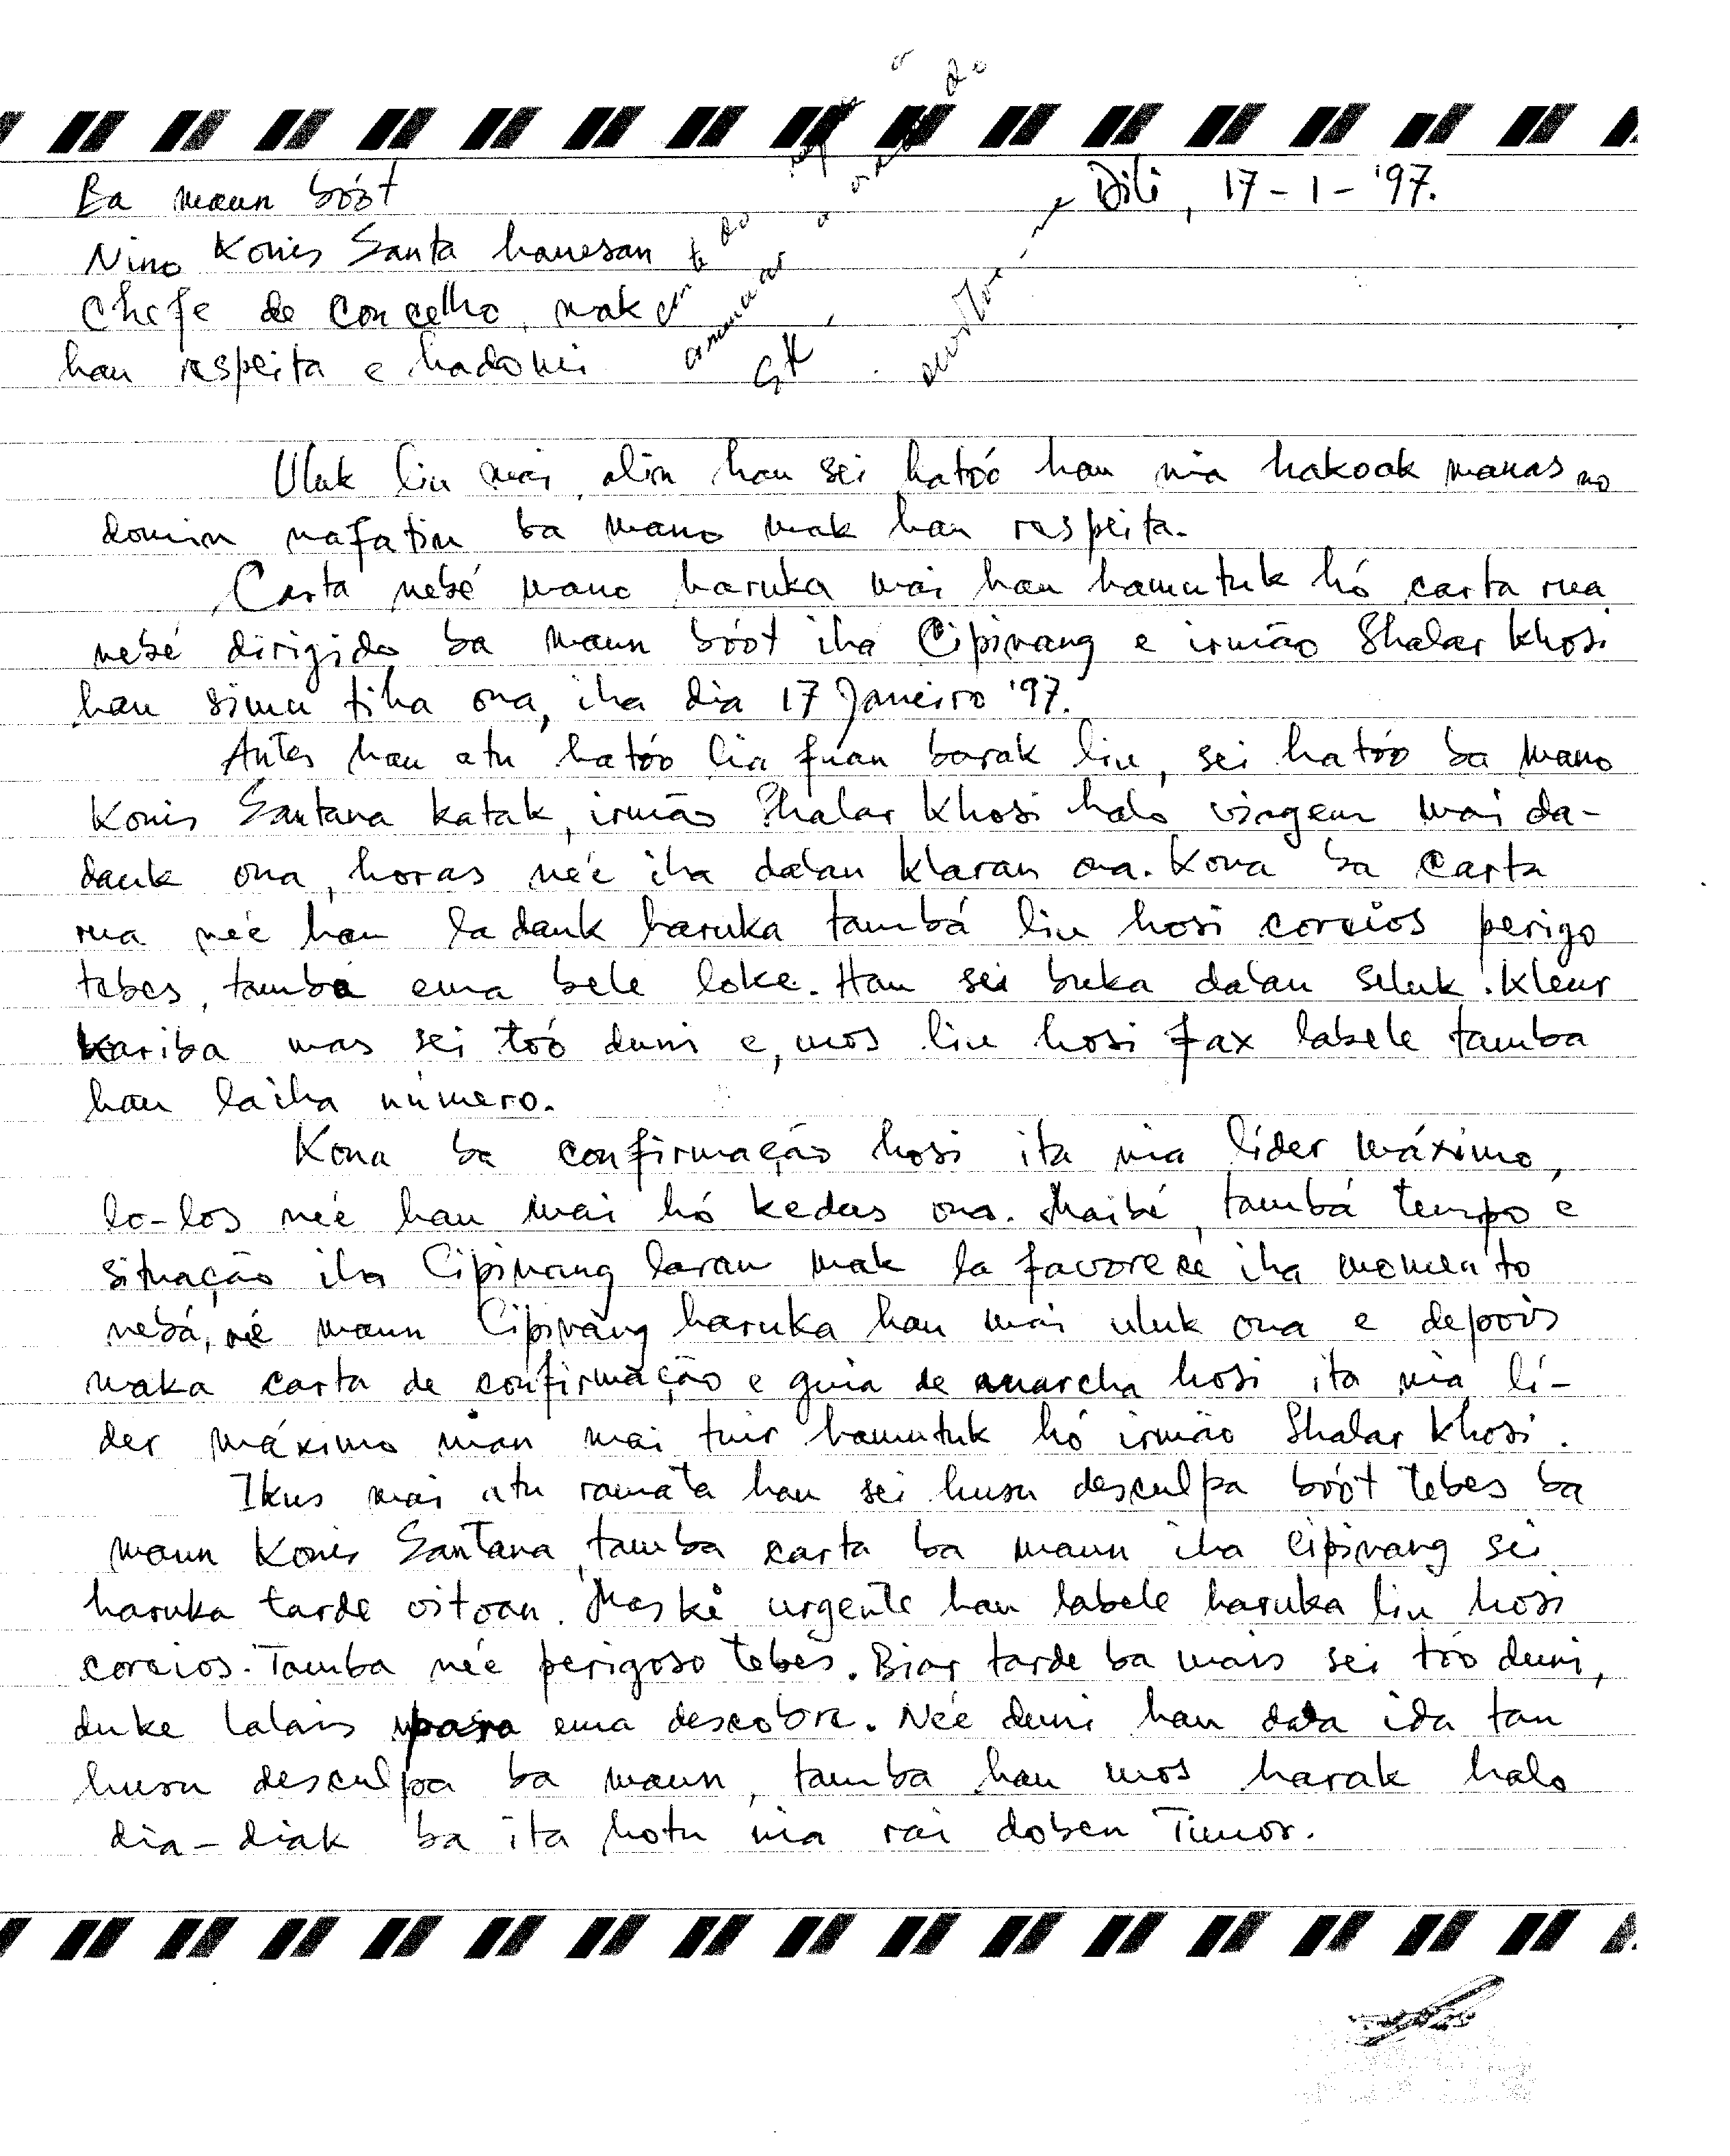 Dili, 17 - 1 - '97.
Ba maun bóót
Nino Konis Santa hanesan
Chefe de Concelho, mak
hau respeita e hadomi
Uluk liu mai, alin hau sei hatóo hau nia hakoak manas no
domin nafatin ba mano mak hau respeita.
Carta nebé mano haruka mai hau hamutuk hó carta rua
nebé dirigido ba maun bóót iha Cipinang e irmão Shalar Khosi
hau simu tiha ona, iha dia 17 Janeiro '97.
Antes hau atu hatóo lia fúan barak liu, sei hatóo ba mano
Konis Santana katak, irmão Shalar Khosi haló viagem mai da-
dauk ona, horas neé iha dalan klaran ona. Kona ba carta
rua neé hau ladauk haruka tambá liu hosi correios perigo
tebes, tamba ema bele loke. Hau sei buka dalan seluk. Kleur
kariba mas sei tóo duni e, mos liu hosi fax labele tamba
hau laiha número.
Kona ba confirmação hosi ita nia líder máximo,
lo-los neé hau mai hó kedas ona. Maibé, tambá tempo e
situação iha Cipinang laran mak la favorece iha momento
nebá, né maun Cipinang haruka hau mai uluk ona e depois
maka carta de confirmação e guia de marcha hosi ita nia lí-
der máximo nian mai tuir hamutuk hó irmão Shalar Khosi.
Ikus mai atu ramata hau sei husu desculpa bóót tebes ba
maun Konis Santana, tamba carta ba maun iha Cipinang sei
haruka tarde oitoan. Maské urgente hau labele haruka liu hosi
correios. Tamba neé perigoso tebes. Biar tarde ba mais sei tóo duni,
duke lalais para ema descobre. Neé duni hau dala ida tan
husu desculpa ba maun, tamba hau mos harak halo
dia-diak ba ita hotu nia rai doben Timor.